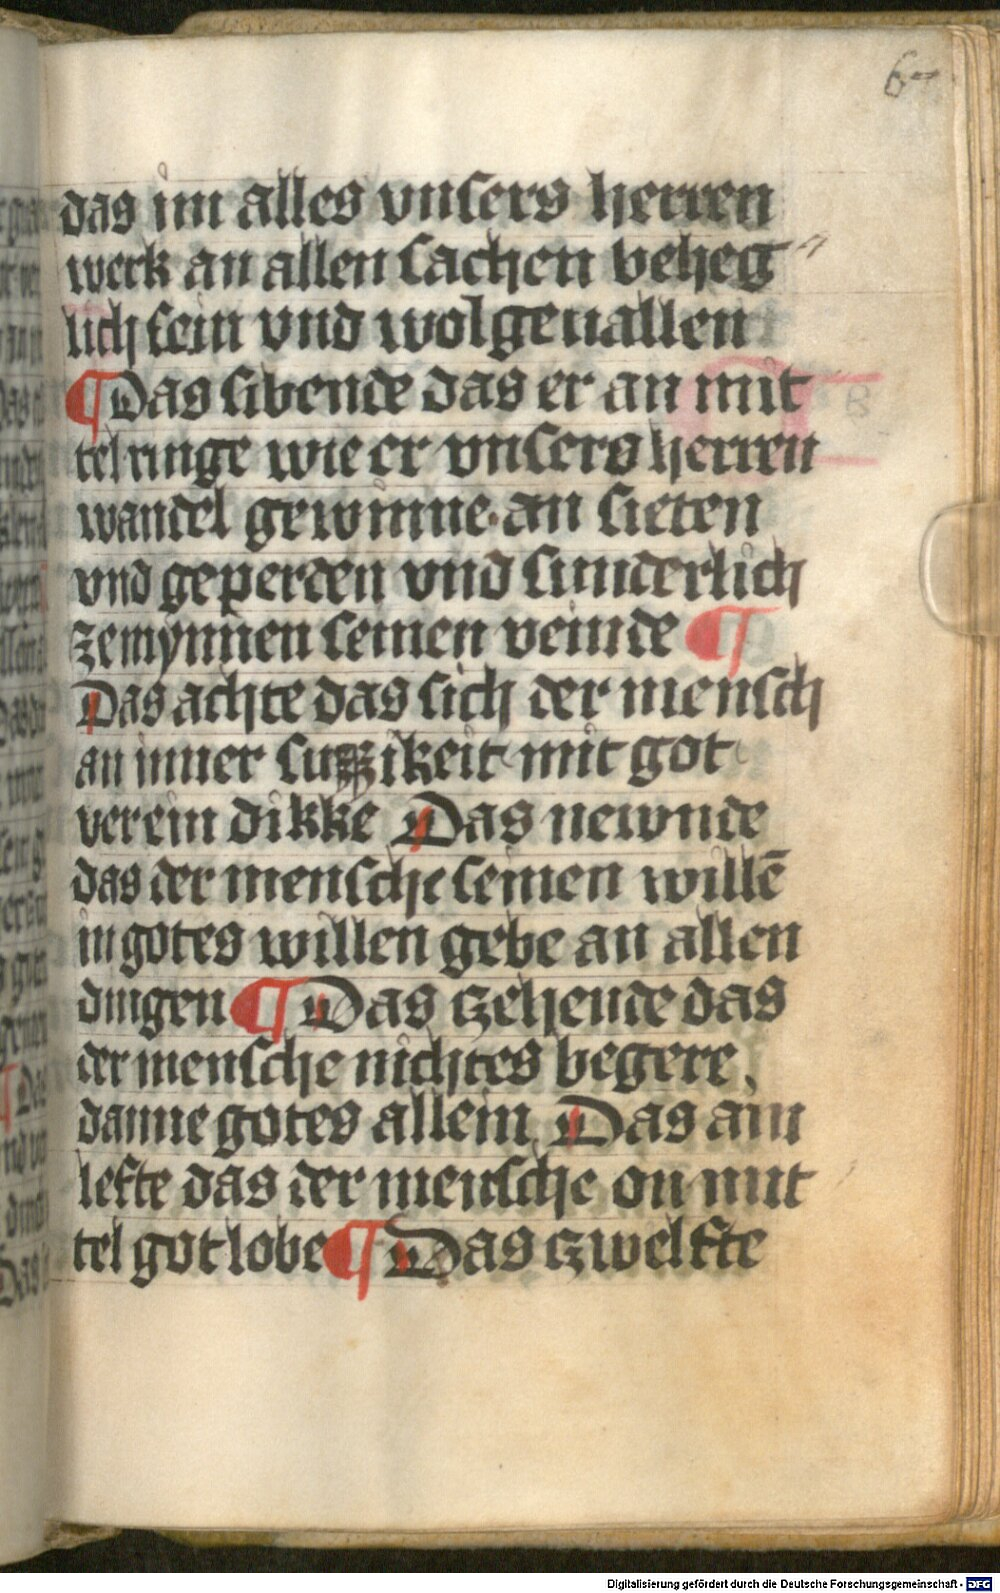 6
das im alles vnsers herren
werk an allen sachen beheg
lich sein vnd wolgeuallen
¶ Das sibende das er an mit
tel ringe wie er vnsers herren
wandel gewinne. an sieten
vnd geperden vnd sunderlich
zemynnen seinen veinde ¶
Das achte das sich der mensch
an inner suzzikeit mit got
verein dikke Das newnde
das der mensche seinen willē
in gotes willen gebe an allen
dingen ¶ Das czehende das
der mensche nichtes begere,
danne gotes allein Das ain
lefte das der mensche on mit
tel got lobe ¶ Das czwelfte
Digitalisierung gefördert durch die Deutsche Forschungsgemeinschaft - DFG